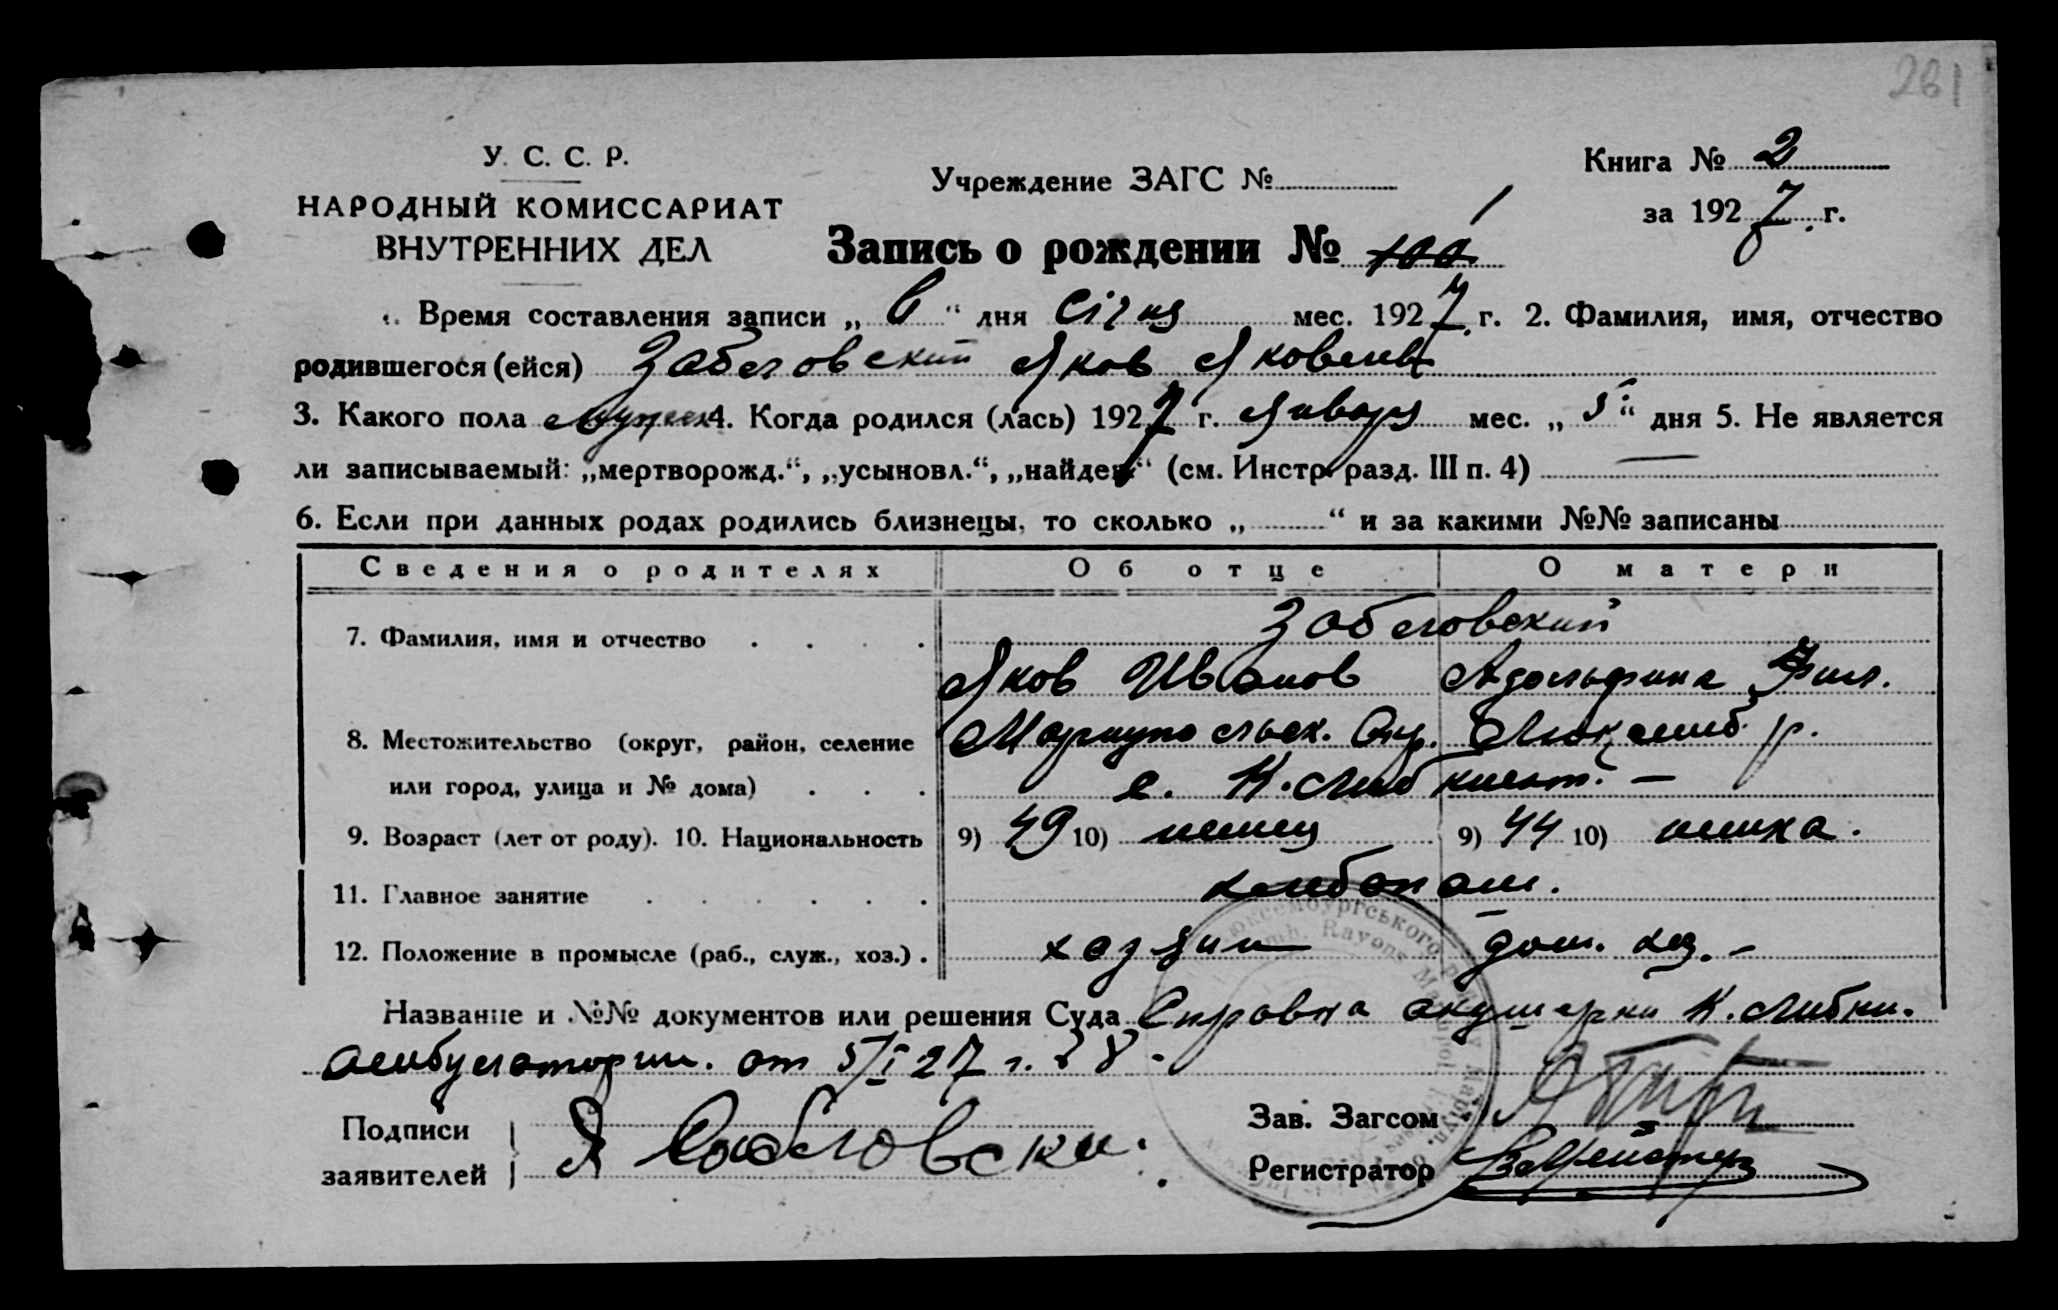 281
У. С. С. Р.
НАРОДНЫЙ КОМИССАРИАТ
ВНУТРЕННИХ ДЕЛ
Учреждение ЗАГС №
Книга № 2
за 1927 г.
Запись о рождении № 100 1
Время составления записи „ 6 “ дня Січня мес. 1927 г. 2. Фамилия, имя, отчество
родившегося (ейся) Забеловский Яков Яковлев
3. Какого пола Мужск 4. Когда родился (лась) 1927 г. Января мес. „ 5 “ дня 5. Не является
ли записываемый: „мертворожд.“, „усыновл.“, „найден“ (см. Инстр. разд. III п. 4) —
6. Если при данных родах родились близнецы, то сколько „ “ и за какими №№ записаны
Сведения о родителях Об отце О матери
7. Фамилия, имя и отчество Забеловский
Яков Иванов Адольфина Фил.
8. Местожительство (округ, район, селение Мариупольск. Окр. Люксемб. р.
или город, улица и № дома) с. К. —
9. Возраст (лет от роду). 10. Национальность 9) 49 10) немец 9) 44 10) немка.
11. Главное занятие хлебопаш.
12. Положение в промысле (раб., служ., хоз.) хозяин дом. хоз. —
Название и №№ документов или решения Суда Справка акушерки К.
амбулатории. от 5/I 27 г. № 8.
Подписи
заявителей
Я
Зав. Загсом
Регистратор
люксембургського
Rayons